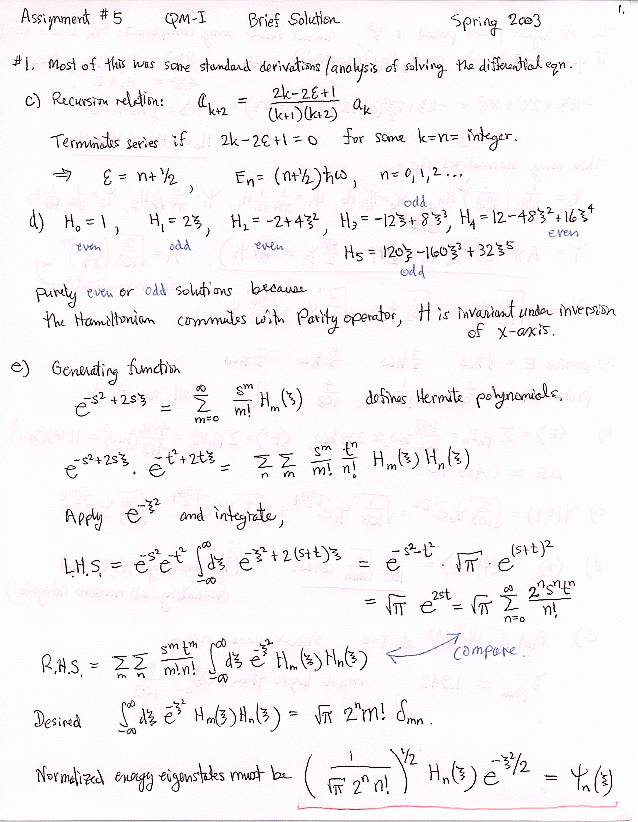 1.
Assignment #5 QM-I Brief Solution Spring 2003
#1. Most of this was some standard derivations/analysis of solving the differential eqn.
c) Recursion relation: a_{k+2} = (2k-2ε+1)/((k+1)(k+2)) a_k
Terminates series if 2k-2ε+1=0 for some k=n= integer.
⇒ ε = n+½, E_n = (n+½)ħω, n=0,1,2...
odd
d) H_0=1, H_1=2ξ, H_2=-2+4ξ², H_3=-12ξ+8ξ³, H_4=12-48ξ²+16ξ⁴
even odd even even
H_5=120ξ-160ξ³+32ξ⁵
odd
Purely even or odd solutions because
the Hamiltonian commutes with Parity operator, H is invariant under inversion
of x-axis.
e) Generating function
e^{-s²+2sξ} = Σ_{m=0}^{∞} s^m/m! H_m(ξ) defines Hermite polynomials.
e^{-s²+2sξ} · e^{-t²+2tξ} = Σ_n Σ_m s^m/m! t^n/n! H_m(ξ) H_n(ξ)
Apply e^{-ξ²} and integrate,
L.H.S. = e^{-s²} e^{-t²} ∫_{-∞}^{∞} dξ e^{-ξ²+2(s+t)ξ} = e^{-s²-t²} · √π e^{(s+t)²}
= √π e^{2st} = √π Σ_{n=0}^{∞} 2^n s^n t^n/n!
R.H.S. = Σ_m Σ_n s^m t^n/m!n! ∫_{-∞}^{∞} dξ e^{-ξ²} H_m(ξ) H_n(ξ) compare.
Desired ∫_{-∞}^{∞} dξ e^{-ξ²} H_m(ξ) H_n(ξ) = √π 2^n m! δ_{mn}.
Normalized energy eigenstates must be (1/(√π 2^n n!))^{1/2} H_n(ξ) e^{-ξ²/2} = ψ_n(ξ)